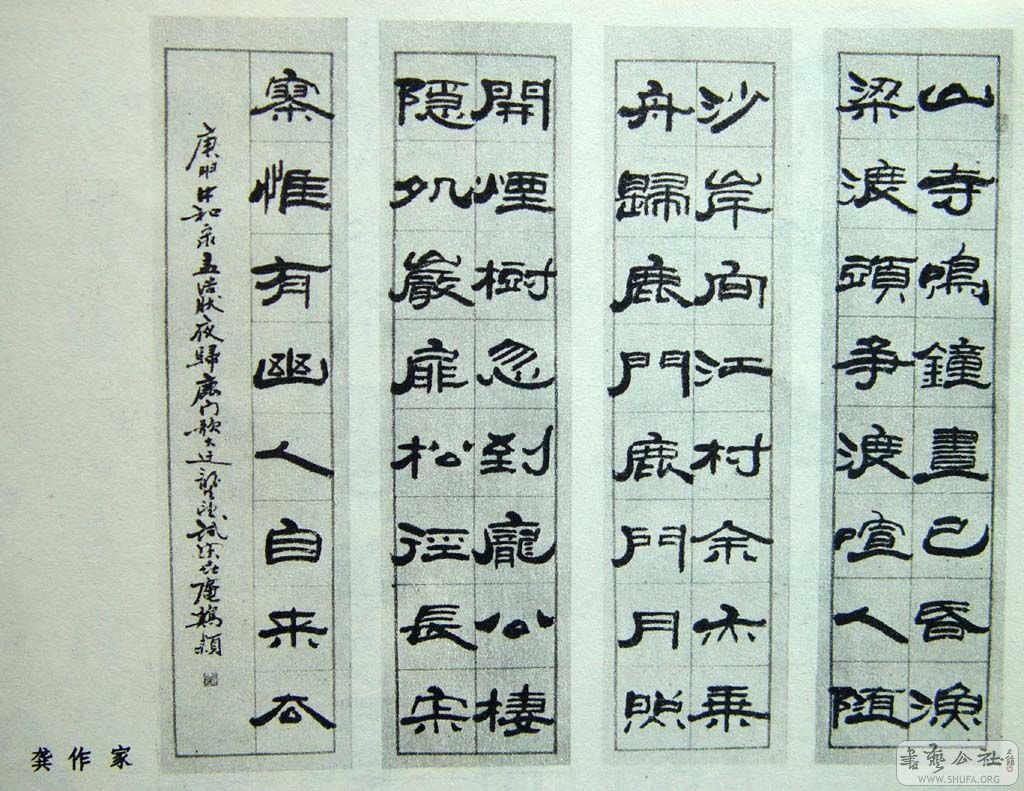 山寺鳴鐘晝已昏漁
梁渡頭争渡喧人隨
沙岸向江村余亦乘
舟歸鹿門鹿門月照
開煙樹忽到龐公棲
隱処巖扉松徑長宋
寥惟有幽人自来去
庚申 孟浩然夜歸鹿门歌
龚作家
書藝公社
WWW.SHUFA.ORG